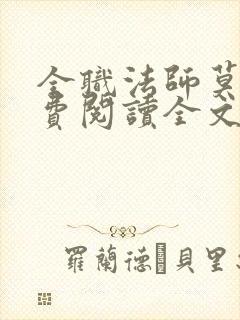 全職法師莫
費閱讀全文
羅蘭德·貝里